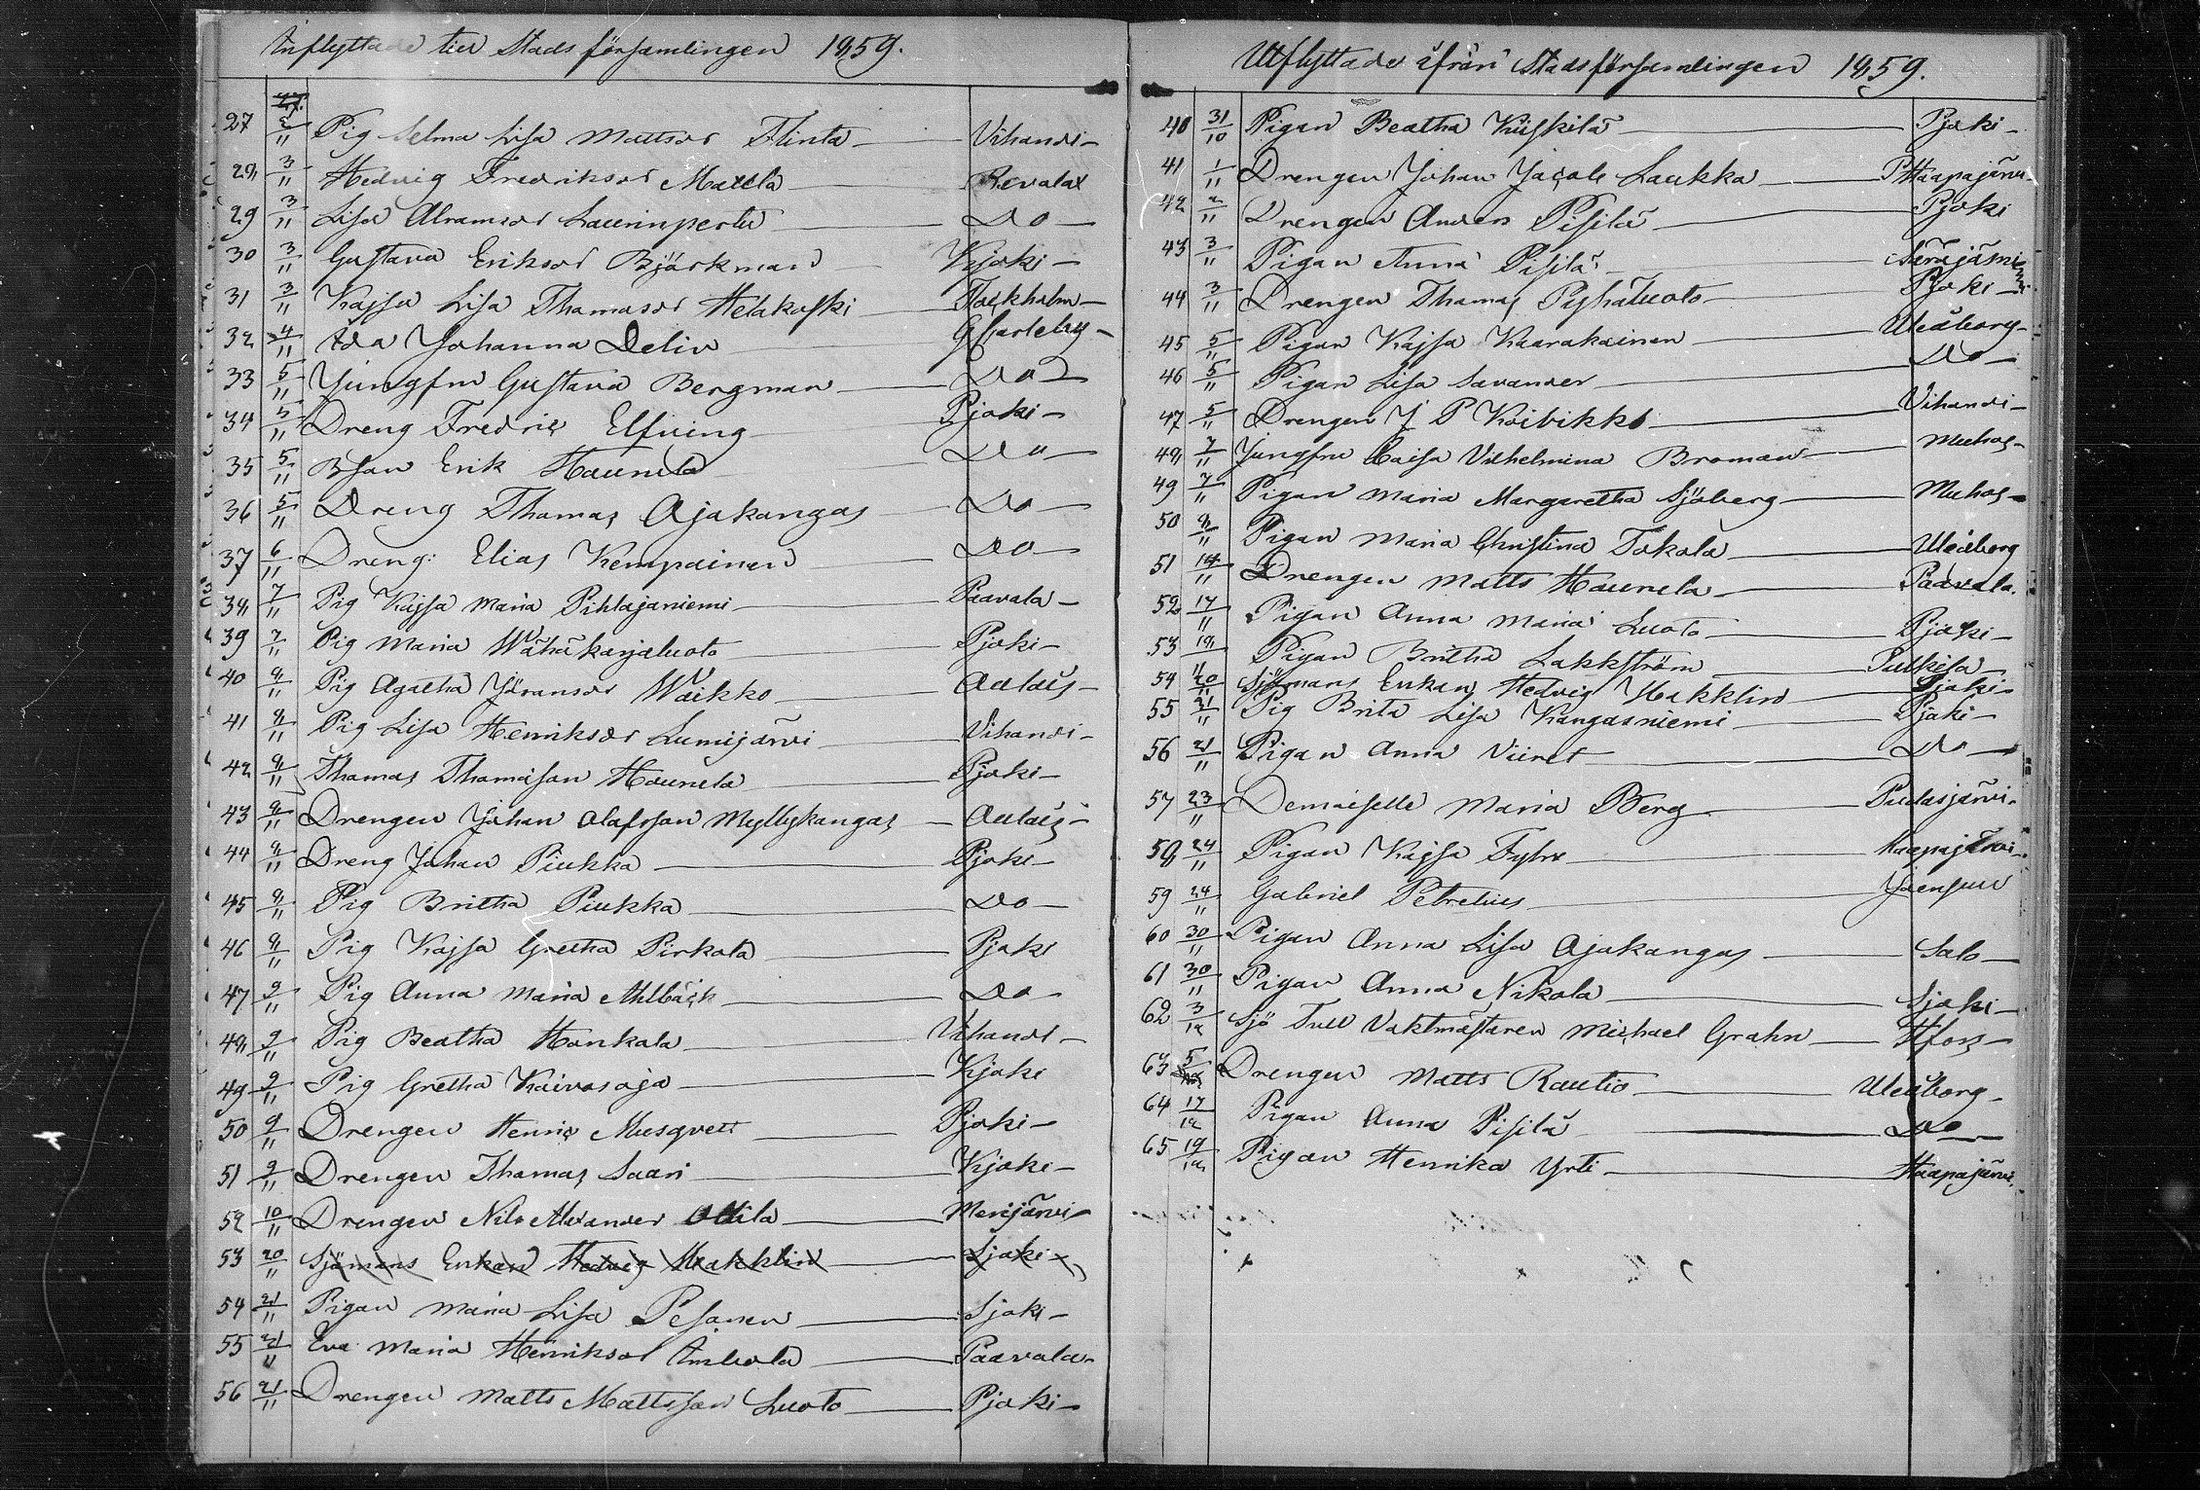 Inflyttade till Stadsförsamlingen 1859.
27 2/11 Pig Selma Lisa Mattsdr Flinta Vihandi
28 3/11 Hedvig Fredriksdr Mattla Revalax
29 3/11 Lisa Abramsdr Laurinperttu Do
30 3/11 Gustava Eriksdr Björkman Kjoki
31 3/11 Kajsa Lisa Thomasdr Helakoski
32 4/11 Ida Johanna Delin GCarleby
33 5/11 Jungfru Gustava Bergman Do
34 5/11 Dreng Fredric Elfving Pjoki
35 5/11 Bson Erik Haunela Do
36 5/11 Dreng Thomas Ojakangas Do
37 6/11 Dreng: Elias Kempainen Do
38 7/11 Pig Kajsa Maria Pihlajaniemi Paavola
39 7/11 Pig Maria Wähäkarjaluoto Pjoki
40 8/11 Pig Agatha Jöransdr Waikko
41 8/11 Pig Lisa Henriksdr Lumijärvi Vihandi
42 8/11 Thomas Thomasson Haunela Pjoki
43 8/11 Drengen Johan Olafsson Myllykangas
44 8/11 Dreng Johan Piukka Pjoki
45 8/11 Pig Britha Piukka Do
46 8/11 Pig Kajsa Gretha Pirkola Pjoki
47 9/11 Pig Anna Maria Ahlbäck Do
48 9/11 Pig Beatha Honkala Vihandi
49 9/11 Pig Gretha Kaivosoja Kjoki
50 9/11 Drengen Henric Musqvett Pjoki
51 9/11 Drengen Thomas Saari Kjoki
52 10/11 Drengen Nils Alexander Ollila Merijärvi
53 20/11 Sjömans Enkan Hedvig Hakklin Sjoki
54 21/11 Pigan Maria Lisa Pesonen Sjoki
55 21/11 Eva Maria Henriksdr Paavola
56 21/11 Drengen Matts Mattsson Luoto Pjoki
Utflyttade ifrån Stadsförsamlingen 1859.
40 31/10 Pigan Beatha Kiiskilä Pjoki
41 1/11 Drengen Johan Jacob Laukka PHaapajärvi
42 2/11 Drengen Anders Pisilä Pjoki
43 3/11 Pigan Anna Pisilä
44 3/11 Drengen Thomas Pyhäluoto Pjoki
45 5/11 Pigan Kajsa Kaarakainen Uleåborg
46 5/11 Pigan Lisa Savander Do
47 5/11 Drengen J P Koivikko Vihandi
48 7/11 Jungfru Caisa Vilhelmina Broman Muhos
49 7/11 Pigan Maria Margaretha Sjöberg Muhos
50 8/11 Pigan Maria Christina Tokola Uleåborg
51 14/11 Drengen Matts Haunela Paavola
52 17/11 Pigan Anna Maria Luoto Pjoki
53 18 Pigan Britha Lakkström Pulkila
54 20/11 Sjömans Enkan Hedvig Hakklin Sjoki
55 21/11 Pig Brita Lisa Kangasniemi Pjoki
56 21/11 Pigan Anna Viiret Do
57 23/11 Demoiselle Maria Berg Pudasjärvi
58 24/11 Pigan Kajsa Fyhr Haapajärvi
59 24/11 Gabriel Petrelius Joensuu
60 30/11 Pigan Anna Lisa Ojakangas Salo
61 30/11 Pigan Anna Nikola Sjoki
62 3/12 Sjö Tull Vaktmästaren Michael Grahn Hfors
63 5/12 Drengen Matts Rautio Uleåborg
64 17/12 Pigan Anna Pisilä Do
65 19/12 Pigan Henrika Yrti Haapajärvi